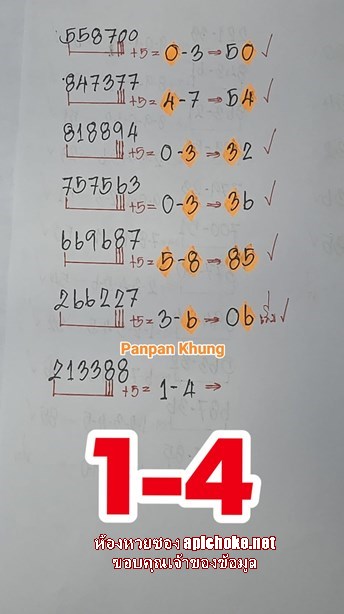 558700
+5 = 0-3 ⇒ 50 ✓
847377
+5 = 4-7 ⇒ 54 ✓
818894
+5 = 0-3 ⇒ 32 ✓
757563
+5 = 0-3 ⇒ 36 ✓
669687
+5 = 5-8 ⇒ 85 ✓
266227
+5 = 3-6 ⇒ 06 ✓
Panpan Khung
213388
+5 = 1-4 ⇒
1-4
ห้องหวยซอง apichoke.net
ขอบคุณเจ้าของข้อมูล